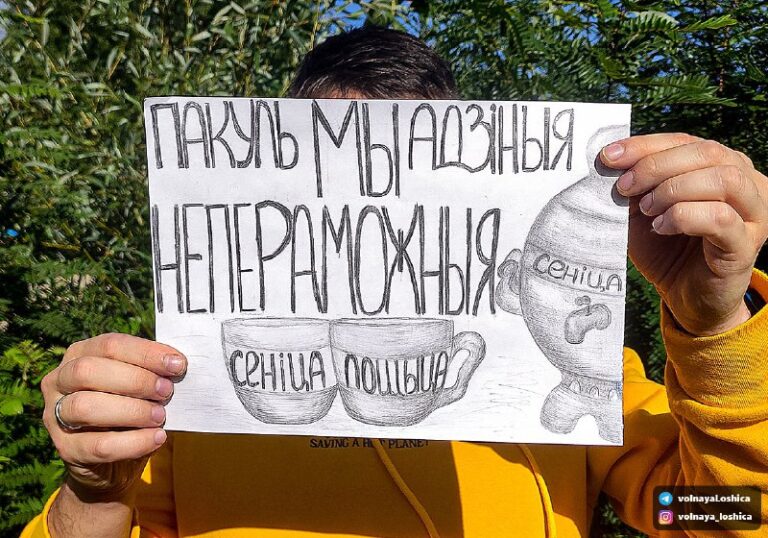 ПАКУЛЬ МЫ АДЗІНЫЯ
НЕПЕРАМОЖНЫЯ
СЕНІЦА
СЕНІЦА ЛОШЫЦА
SAVING A PLANET
volnayaLoshica
volnaya_loshica